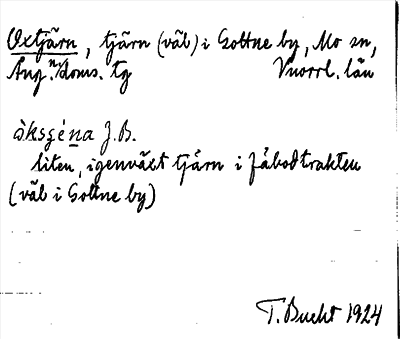 Oxtjärn, tjärn (väl) i Gottne by, Mo sn,
Ång.n. Doms. tg Vnorrl. län
åksʒéna J.B.
liten, igenväxt tjärn i Fäbodtrakten
(väl i Gottne by)
T. Bucht 1924